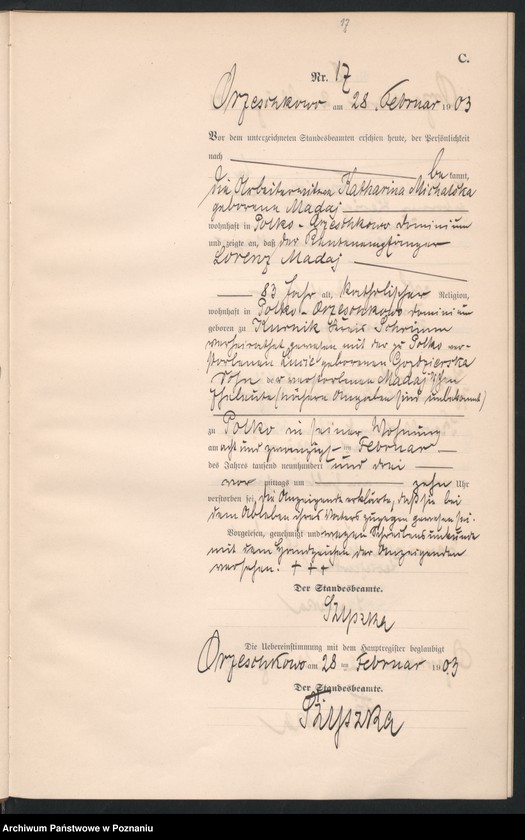 17
C.
Nr. 17
Orzeschkowo am 28 Februar 1903
Vor dem unterzeichneten Standesbeamten erschien heute, der Persönlichkeit
nach be kannt,
die Arbeiterwitwe Katharina Michalska
geborene Madaj
wohnhaft in Polko-Orzeschkowo Dominium
und zeigte an, daß der Rentenempfänger
Lorenz Madaj
83 Jahr alt, katholischer Religion,
wohnhaft in Polko-Orzeschkowo Dominium
geboren zu Kurnik Kreis Schrimm
verheirathet gewesen mit der zu Polko ver-
storbenen geborenen
Sohn der verstorbenen Madaj'schen
Eheleute (nähere Angaben sind unbekannt)
zu Polko in seiner Wohnung
am acht und zwanzigsten Februar
des Jahres tausend neunhundert und drei
vor mittags um zehn Uhr
verstorben sei, die Anzeigende erklärte, daß sie bei
dem Ableben ihres Vaters zugegen gewesen sei.
Vorgelesen, genehmigt und wegen Schreibensunkunde
mit dem Handzeichen der Anzeigenden
versehen. + + +
Der Standesbeamte.
Szyszka
Die Uebereinstimmung mit dem Hauptregister beglaubigt
Orzeschkowo am 28 ten Februar 1903
Der Standesbeamte.
Szyszka
Archiwum Państwowe w Poznaniu